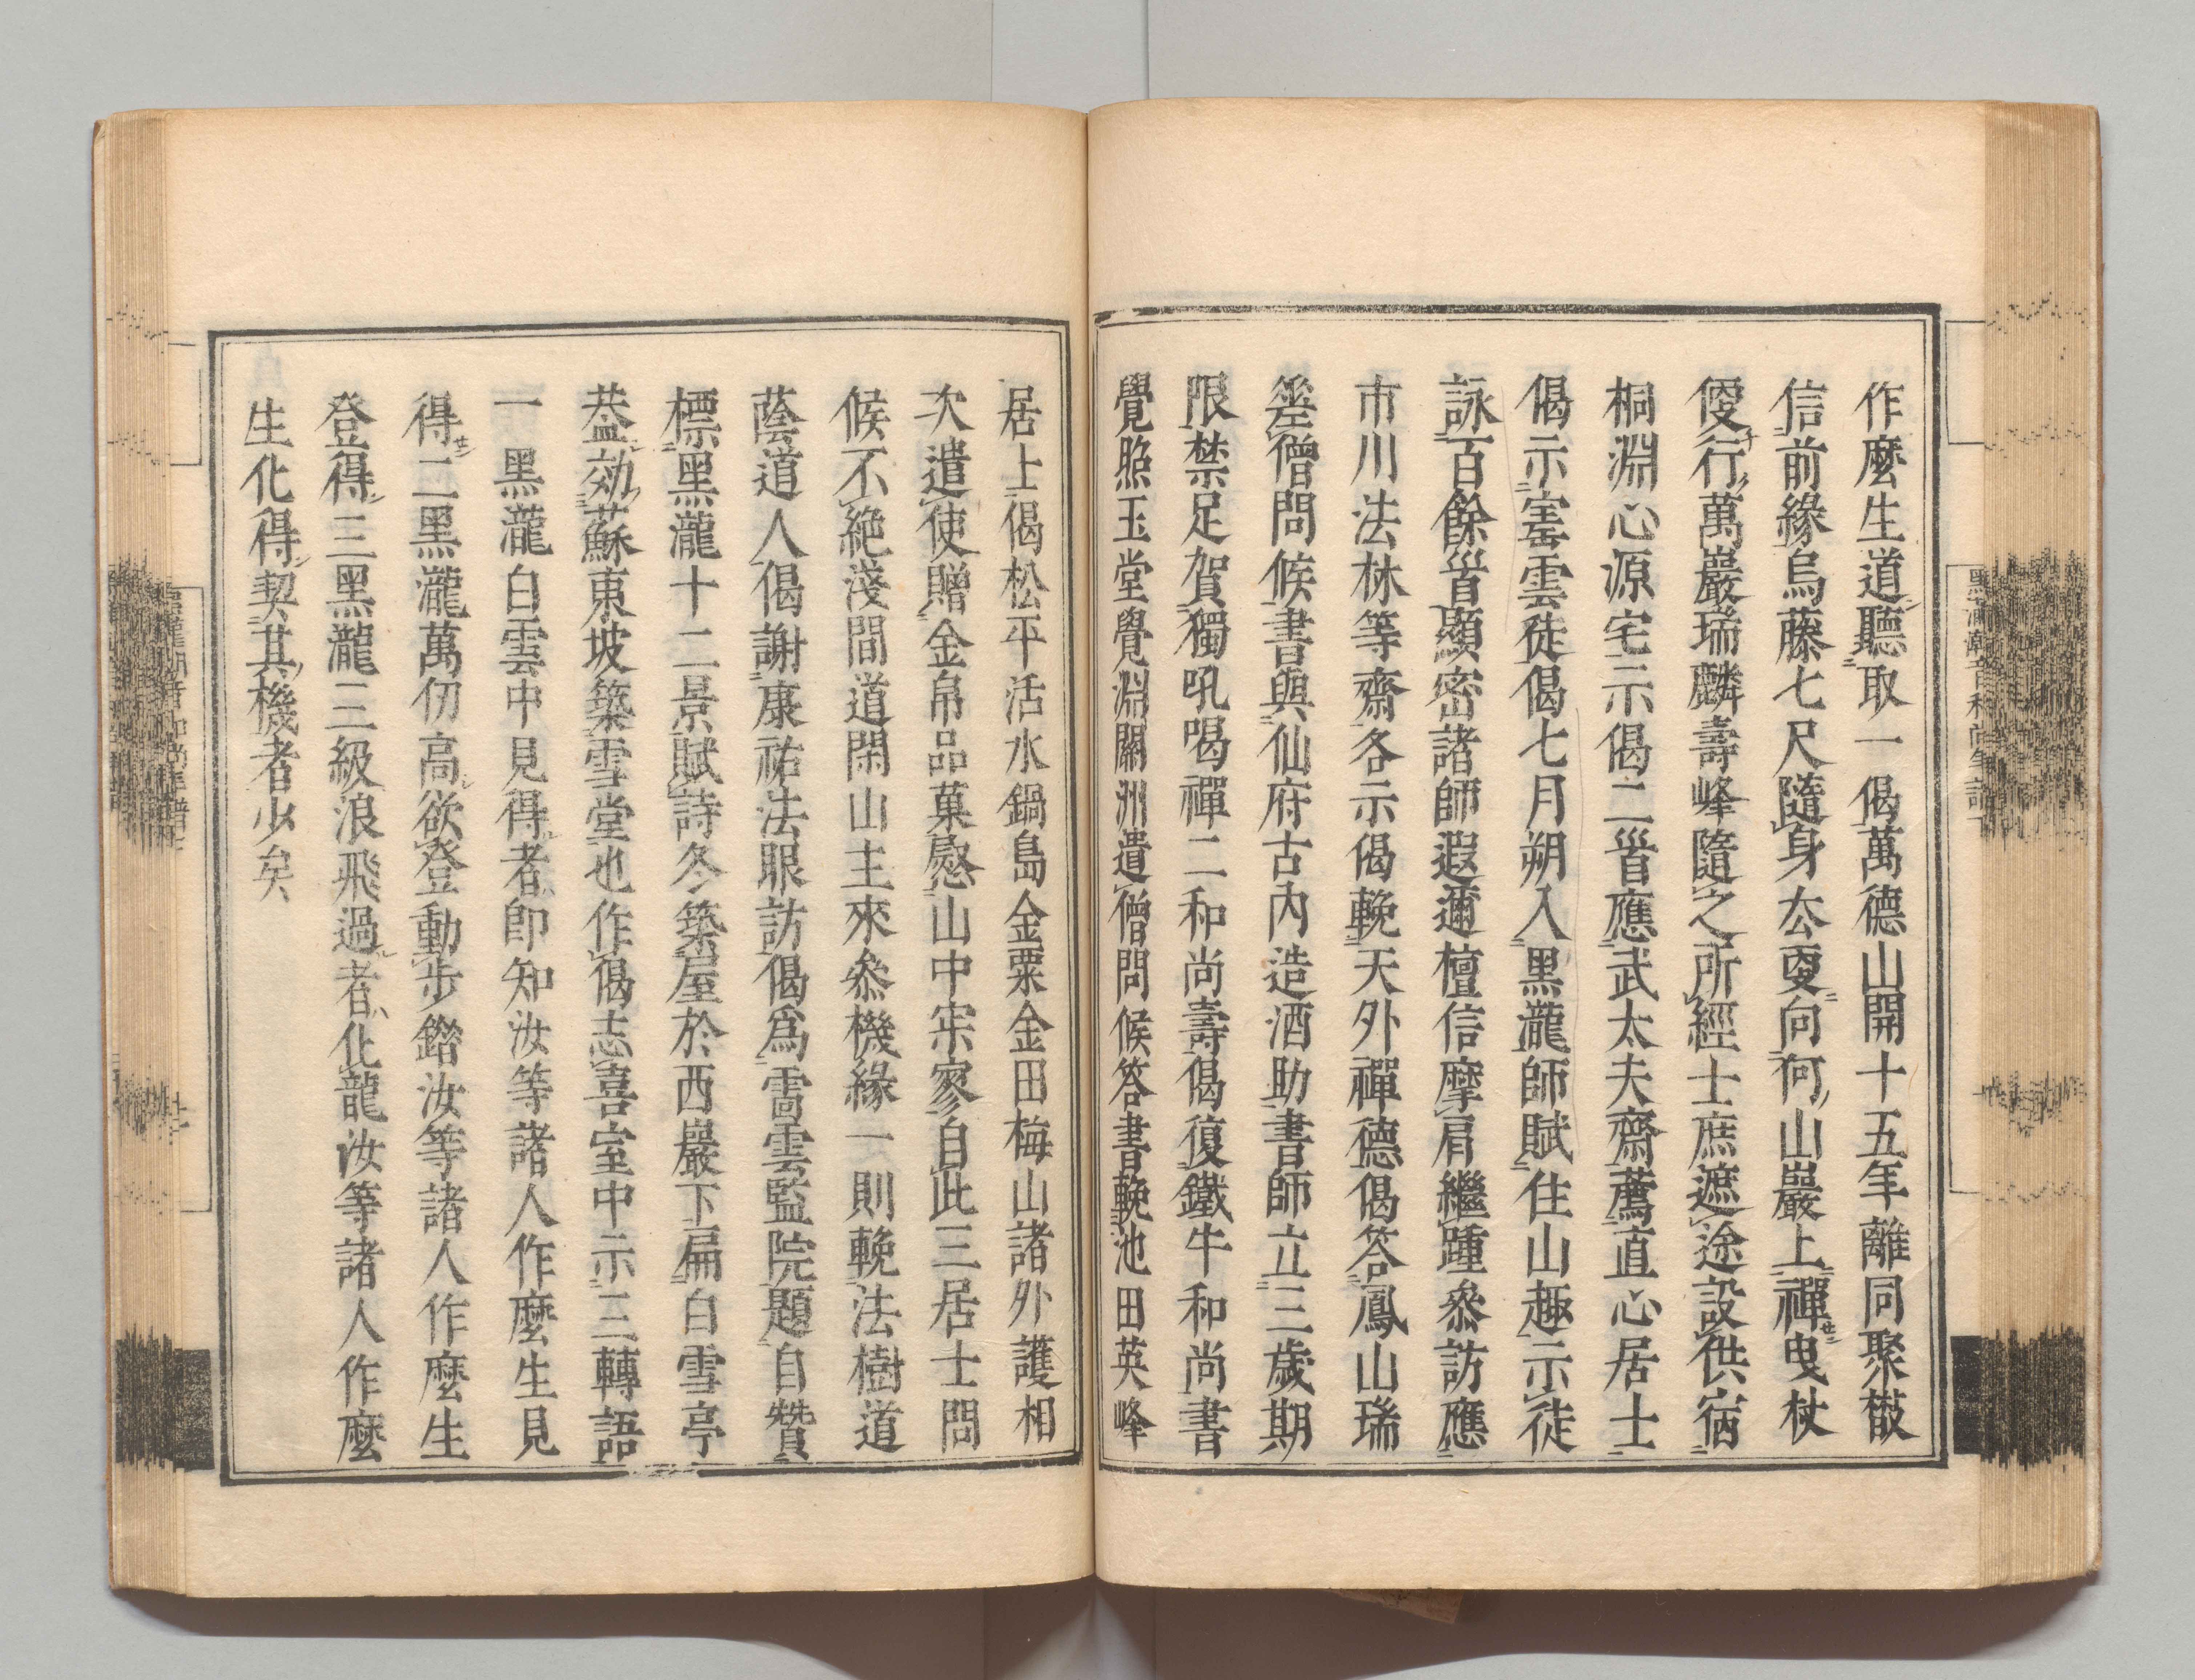 作麼生道聽取一偈萬德山開十五年離同聚
信前緣烏藤七尺隨身厺更向何山巖上禪曳杖
便行萬巖瑞麟壽峰隨之所經士庶遮途設供宿
桐淵心源宅示偈二首應武太夫齋薦直心居士
偈示峯雲徒偈七月朔入黑瀧師賦住山趣示徒
詠百餘首顯密諸師遐邇檀信摩肩繼踵參訪應
市川法林等齋各示偈輓天外禪德偈答鳳山瑞
巖僧問候書與仙府古內造酒助書師立三歲期
限禁足賀獨吼喝禪二和尚壽偈復鐵牛和尚書
覺照玉堂覺淵關洲遣僧問候答書輓池田英峰
居士偈松平活水鍋島金粟金田梅山諸外護相
次遣使贈金帛品菓慰山中寂寥自此三居士問
候不絕淺間道閑山主來參機緣一則輓法樹道
蔭道人偈謝康祐法眼訪偈為雪雲監院題自贊
標黑瀧十二景賦詩冬築屋於西巖下扁白雪亭
葢効蘇東坡築雪堂也作偈志喜室中示三轉語
一黑瀧白雲中見得者即知汝等諸人作麼生見
得二黑瀧萬仞高欲登動步錯汝等諸人作麼生
登得三黑瀧三級浪飛過者化龍汝等諸人作麼
生化得契其機者少矣